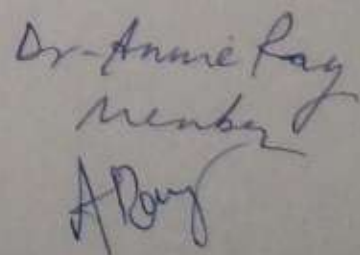 Dr-Annie Ray
Member
A Ray